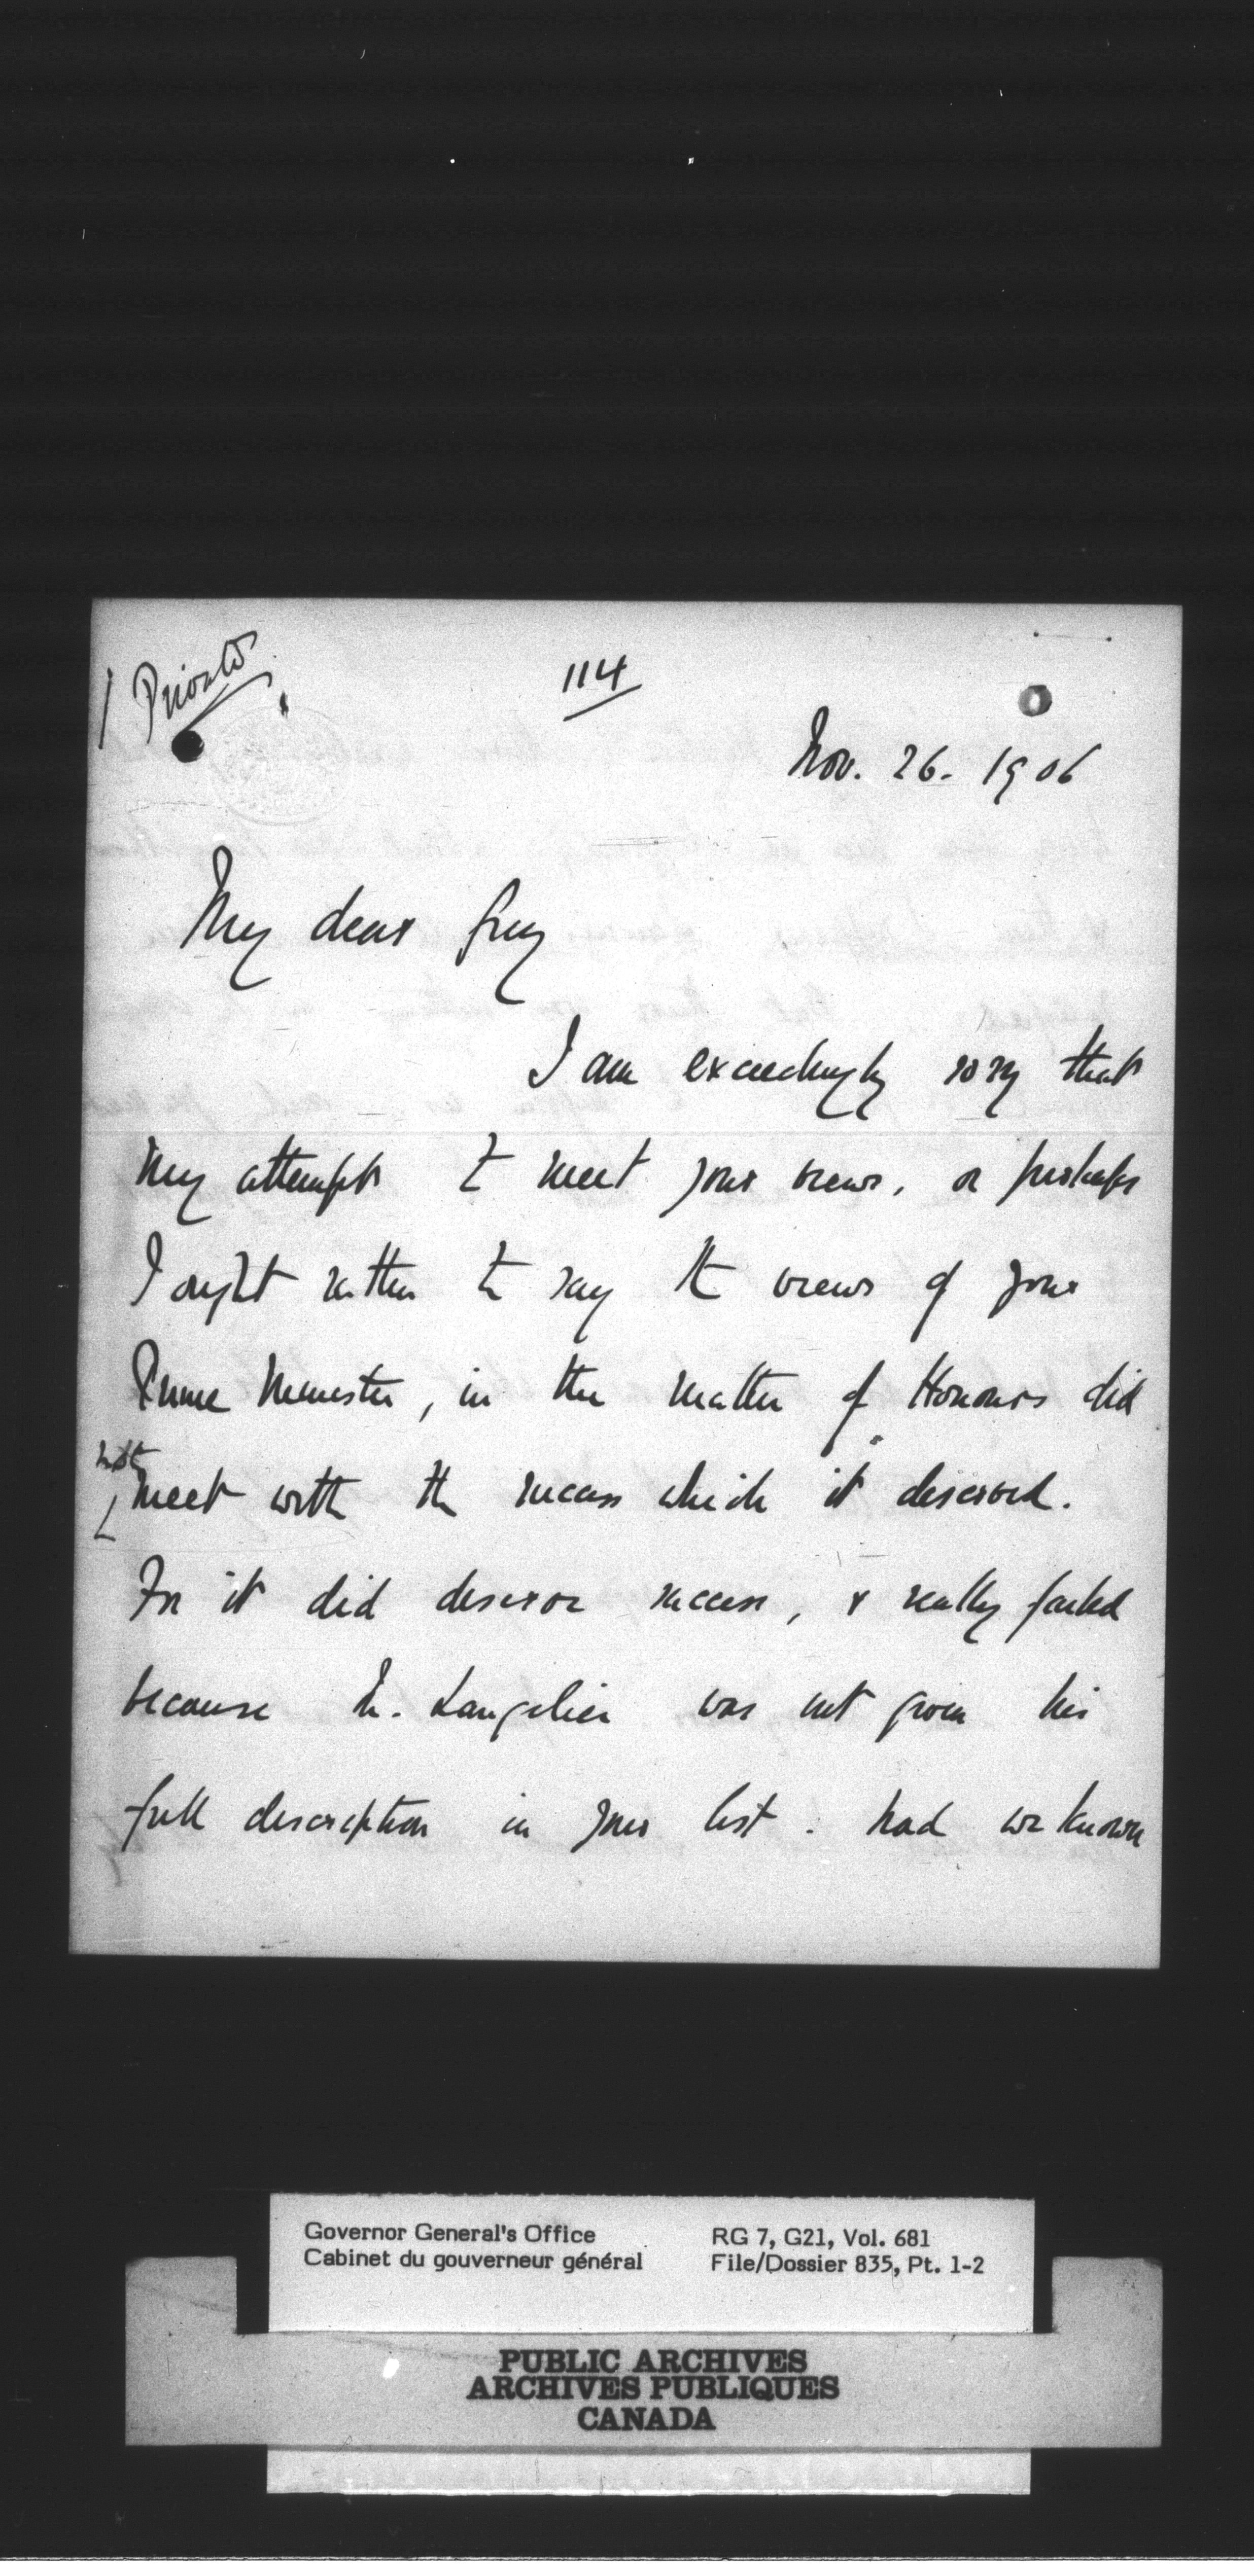 Private
114
Nov. 26. 1906
My dear Grey
I am exceedingly sorry that
my attempt to meet your views, or perhaps
I ought rather to say the views of your
Prime Minister, in the matter of Honours did
not
meet with the success which it deserved.
For it did deserve success, & really failed
because M. Langelier was not given his
full description in your list. had we known
Governor General's Office
Cabinet du gouverneur général
RG 7, G21, Vol. 681
File/Dossier 835, Pt. 1-2
PUBLIC ARCHIVES
ARCHIVES PUBLIQUES
CANADA